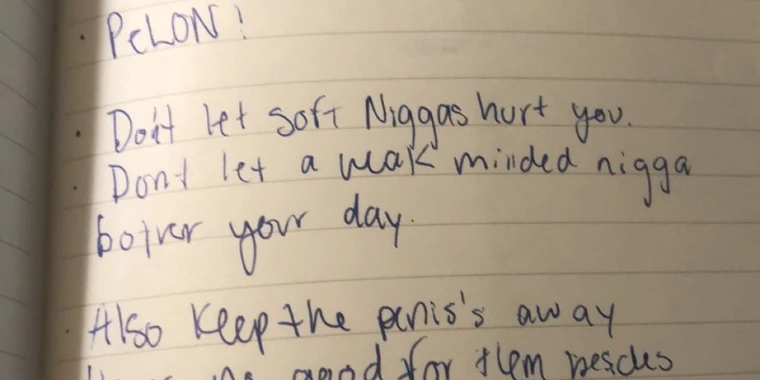 · PeLON!
· Don't let soft Niggas hurt you.
· Dont let a weak minded nigga
bother your day.
· Also keep the penis's away
good for them besides